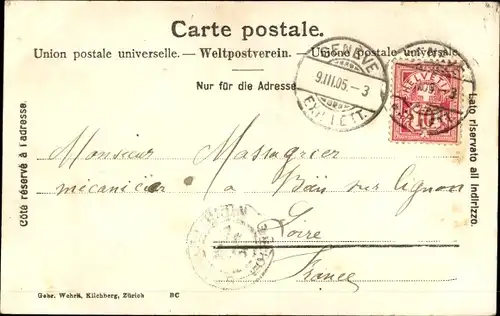 Carte postale.
Union postale universelle. — Weltpostverein. — Unione postale universale.
Nur für die Adresse.
GENÈVE
9.III.05. – 3
EXP. LETT.
HELVETIA
10
Côté réservé à l'adresse.
Lato riservato all indirizzo.
Monsieur Massagrier
mécanicier
a Bâs sur Lignon
Loire
France
Gebr. Wehrli, Kilchberg, Zürich BC